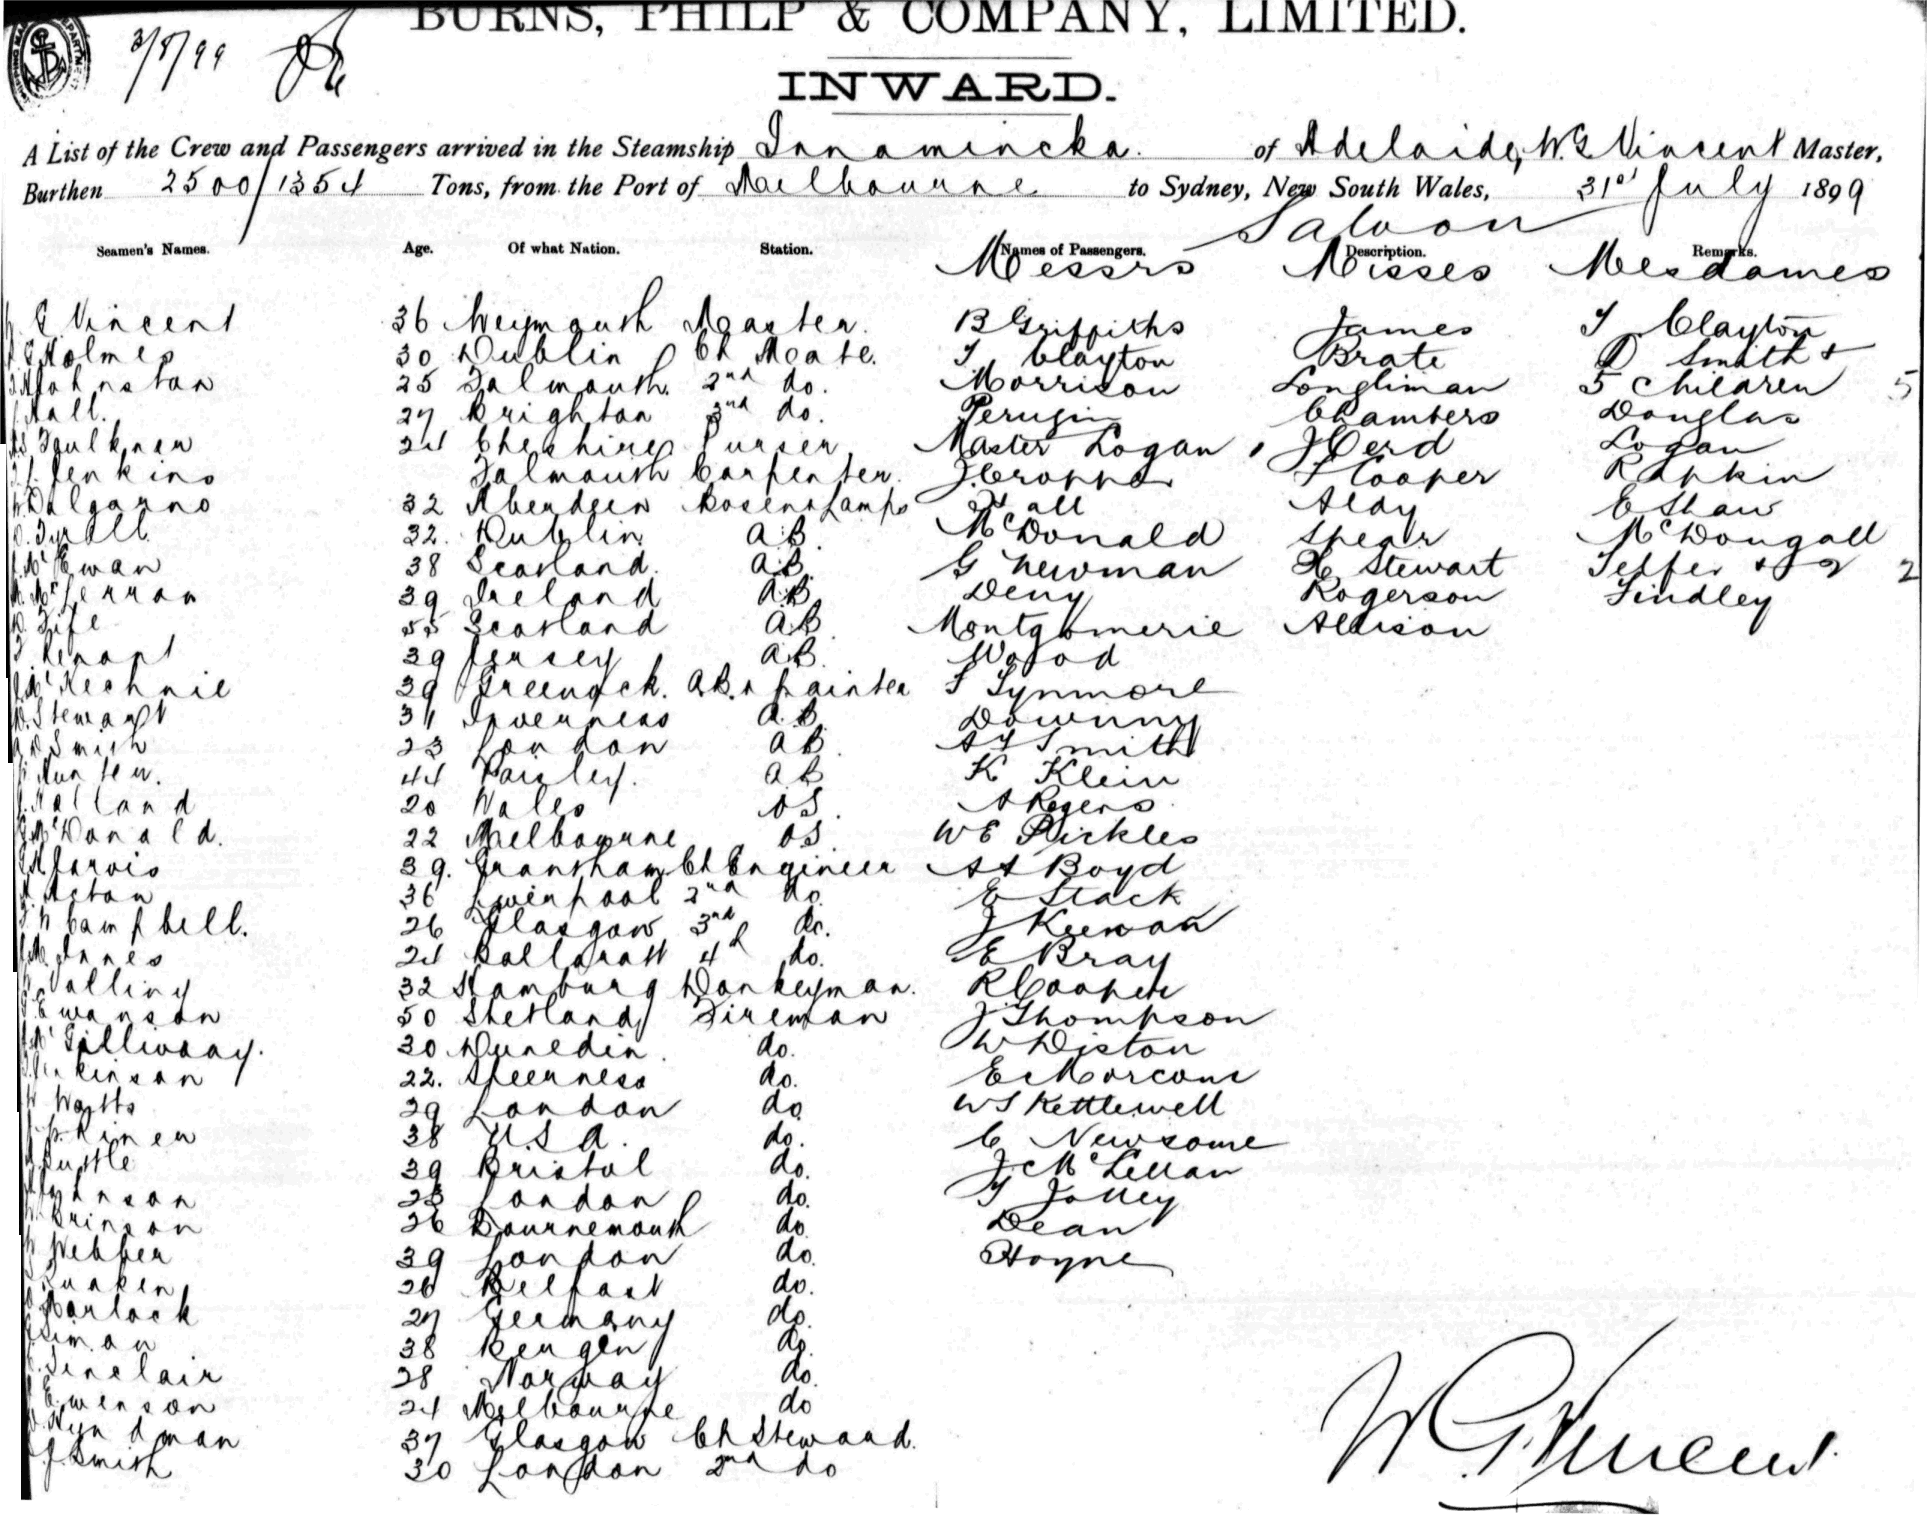 BURNS, PHILP & COMPANY, LIMITED.
3/8/99
INWARD.
A List of the Crew and Passengers arrived in the Steamship Innamincka. of Adelaide, W. G. Vincent Master,
Burthen 2500/1354 Tons, from the Port of Melbourne to Sydney, New South Wales, 31st July 1899
Saloon
Seamen's Names. Age. Of what Nation. Station. Names of Passengers. Description. Remarks.
Messrs Misses Mesdames
G Vincent 36 Weymouth Master. B Griffiths James T Clayton
Holmes 30 Dublin Ch Mate. T Clayton Brate D Smith +
Johnston 25 Falmouth. 2nd do. Morrison Longliman 5 Children 5
Hall. 27 Brighton 3rd do. Perugin Chambers Douglas
Faulkner 24 Cheshire Purser Master Logan J Cerd Logan
Jenkins Falmouth Carpenter. J. Cropper T Cooper Rapkin
Dalgarno 32 Aberdeen Bosen & Lamps Hall Alay E Shaw
Tyrell 32. Dublin. AB. McDonald Spear McDougall
McEwan 38 Scotland. AB. G Newman H Stewart Telfer & 2 2
39 Ireland AB Deny Rogerson Findley
Fife 55 Scotland AB Montgomerie Allison
39 Jersey AB. Wood
McKechnie 39 Greenock. AB. & painter F Lynmore
Stewart 31 Inverness AB Downing
Smith 23 London AB. A G Smith
Hunter. 44 Paisley. AB K Klein
Holland 20 Wales OS. A Rogers
McDonald. 22 Melbourne OS W E Pickles
Jarvis 39. Grantham Ch Engineer A A Boyd
Acton 36 Liverpool 2nd do. E Stack
Campbell. 26 Glasgow 3rd do. J Keenan
Innes 24 Ballarat 4th do. E Bray
32 Hamburg Donkeyman. R Cooper
Ewanson 50 Shetland Fireman J Thompson
McGilliway. 30 Dunedin. do. W Diston
Parkinson 22. Sheerness do. E Marcom
Watts 29 London do. W S Kettlewell
38 USA. do. C Newsome
39 Bristol do. J. McLellan
Johnson 23 London do. T Jolley
Brinson 26 Bournemouth do Dean
Webber 39 London do. Hoyne
26 Belfast do.
Harlock 27 Germany do.
38 Bergen do.
Sinclair 28 Norway do.
Ewenson 24 Melbourne do
Hyndman 37 Glasgow Ch Steward.
J. Smith 30 London 2nd do
W G Vincent